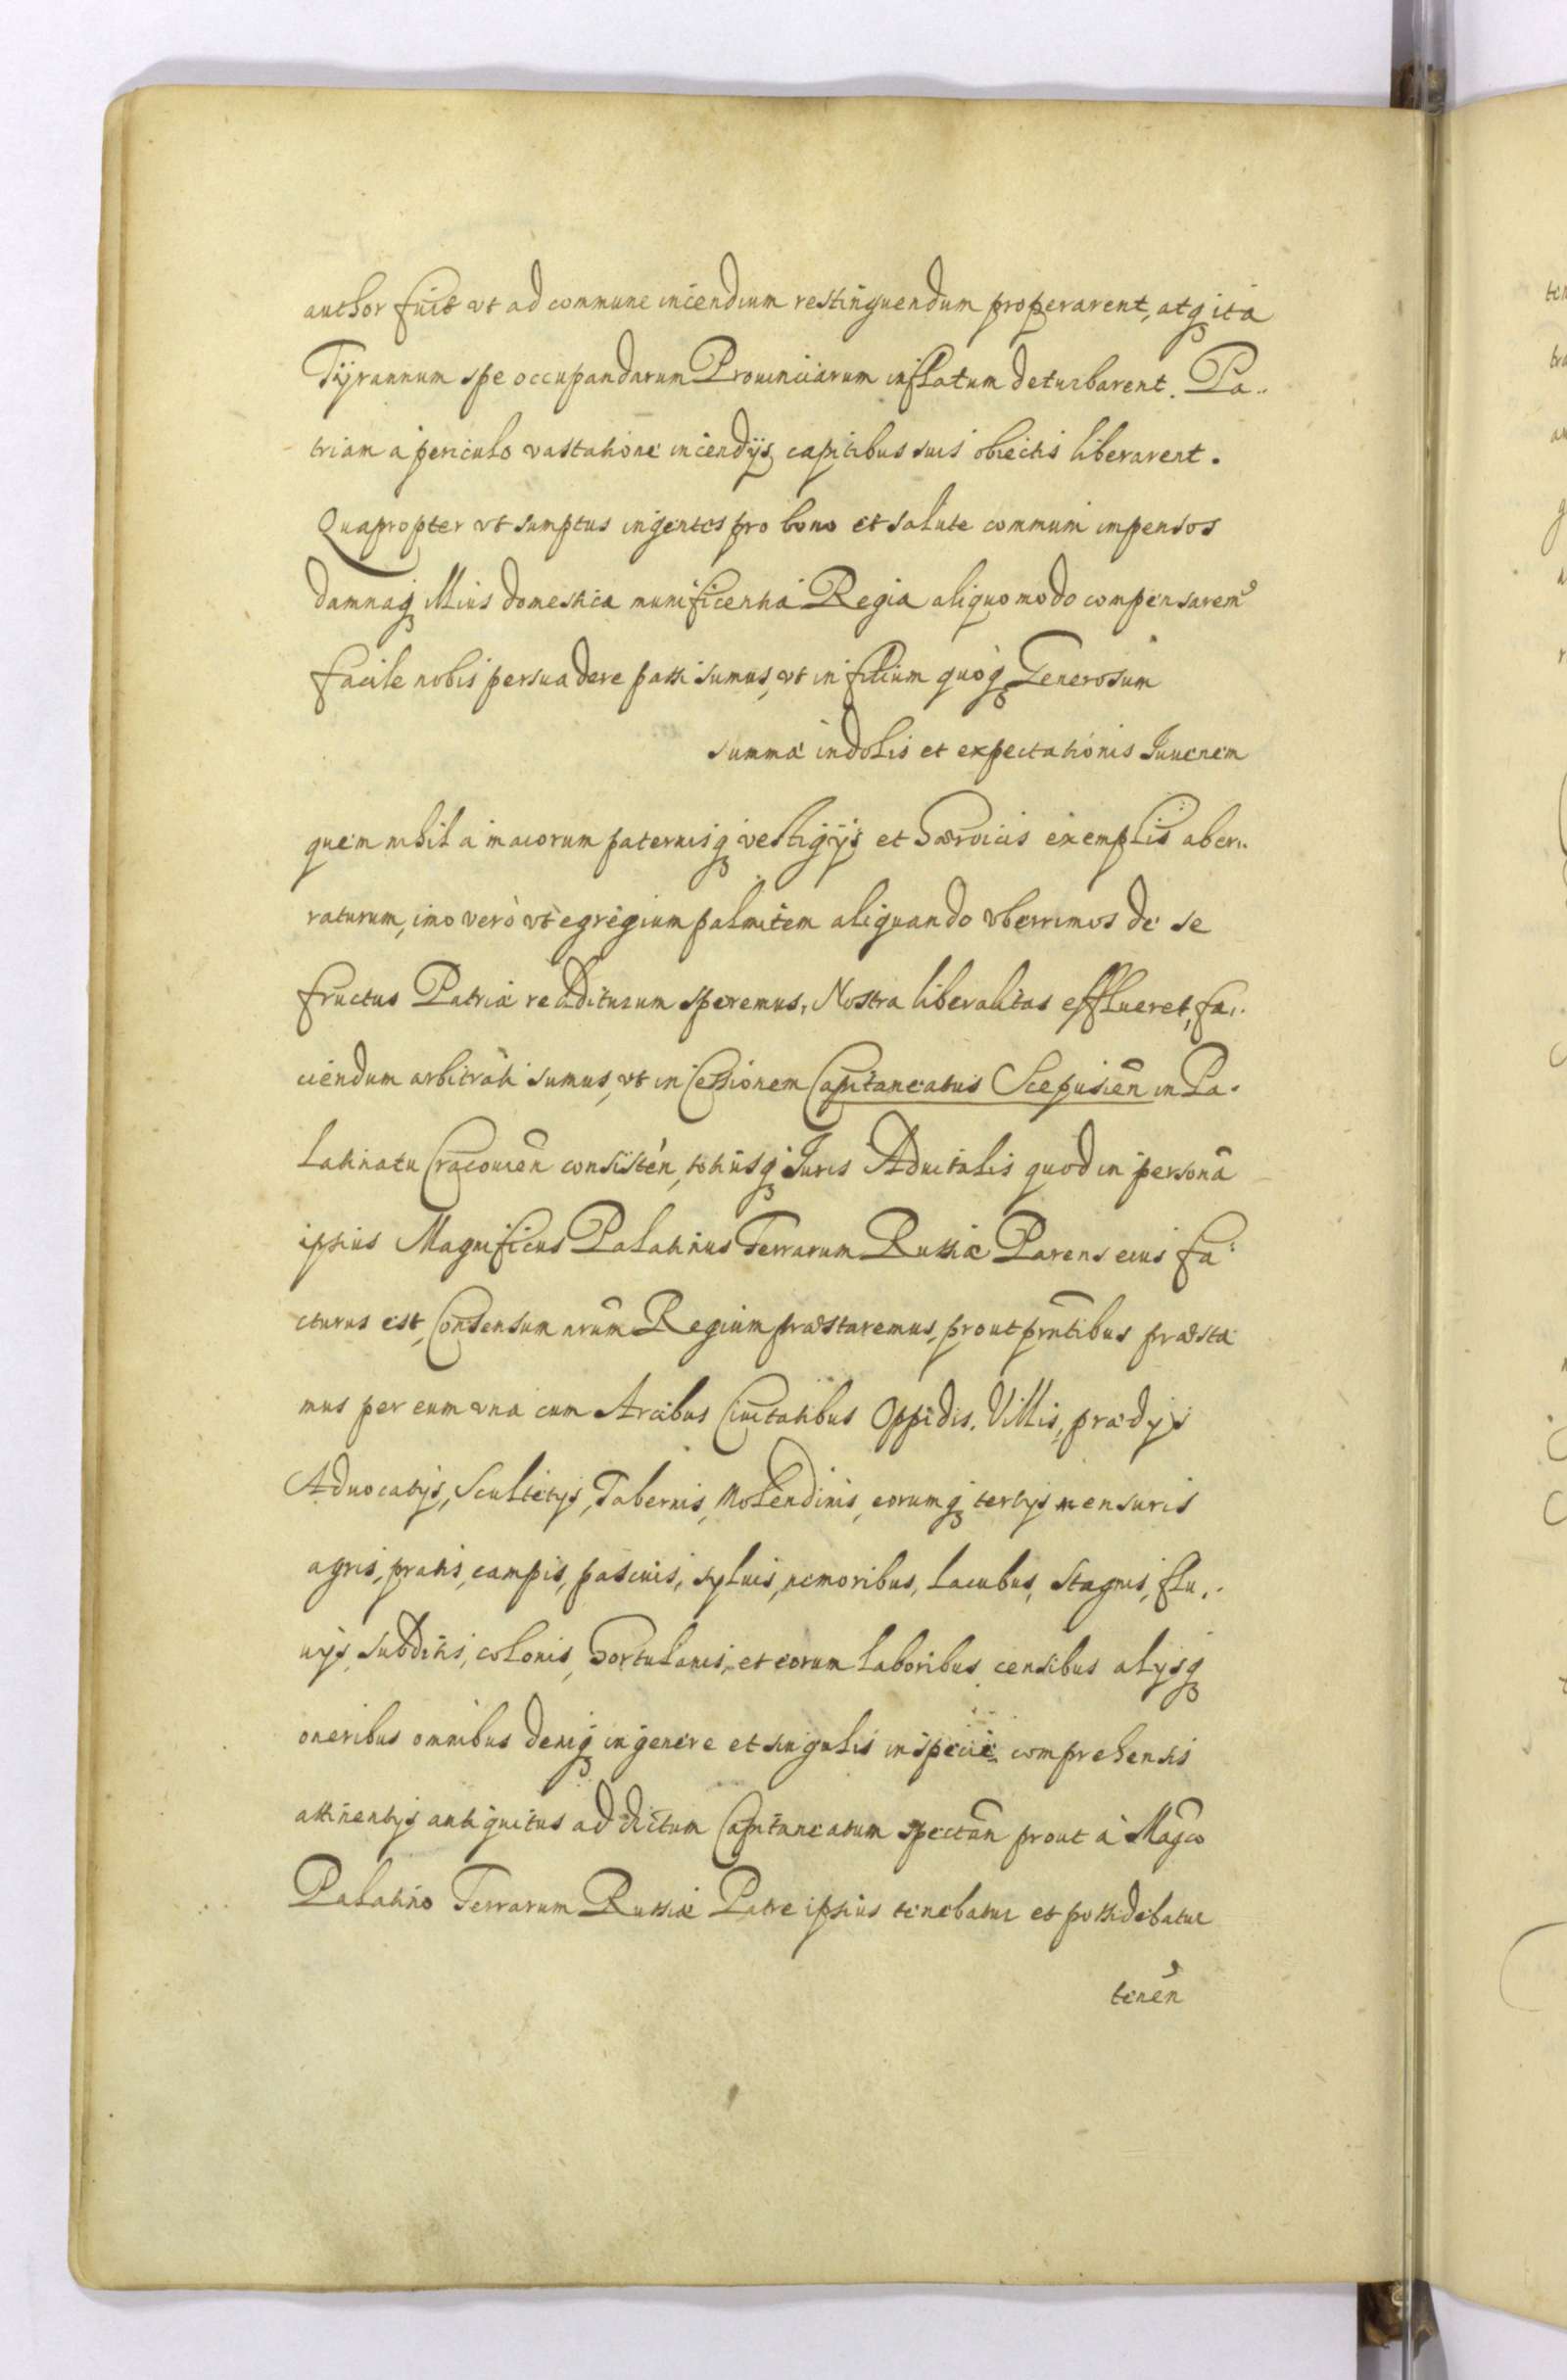 author fuit vt ad commune incendium restinguendum properarent, atq ita
Tyrannum spe occupandarum Prouinciarum inflatum deturbarent. Pa-
triam a periculo vastatione incendijs capitibus suis obiectis liberarent.
Quapropter vt sumptus ingentes pro bono et salute communi impensos
damnaq illius domestica munificentia Regia aliquo modo compensarem9
facile nobis persuadere passi sumus, vt in filium quoq Generosum
summæ indolis et expectationis Juuenem
quem nihil a maiorum paternisq vestigijs et hæroicis exemplis aber-
raturum, imo verò vt egregium palmitem aliquando vberrimos de se
fructus Patriæ redditurum speremus, Nostra liberalitas efflueret, fa-
ciendum arbitrati sumus, vt in Cessionem Capitaneatus Scepusien̄ in Pa-
latinatu Cracouien̄ consisten̄, totiusq Juris Aduitalis quod in personā
ipsius Magnificus Palatinus Terrarum Russiæ Parens eius fa-
cturus est, Consensum nrūm Regium præstaremus, prout pn̄tibus præsta
mus per eum vna cum Arcibus Ciuitatibus Oppidis. Villis, prædijs
Aduocatijs, Scultetijs, Tabernis, Molendinis, eorumq tertijs mensuris
agris, pratis, campis, pascuis, syluis, nemoribus, lacubus, stagnis, flu-
uijs, subditis, colonis, hortulanis, et eorum laboribus censibus alijsq
oneribus omnibus deniq in genere et singulis in specie comprehensis
attinentijs antiquitus ad dictum Capitaneatum spectan̄ prout à Magco
Palatino Terrarum Russiæ Patre ipsius tenebatur et possidebatur
tenen̄